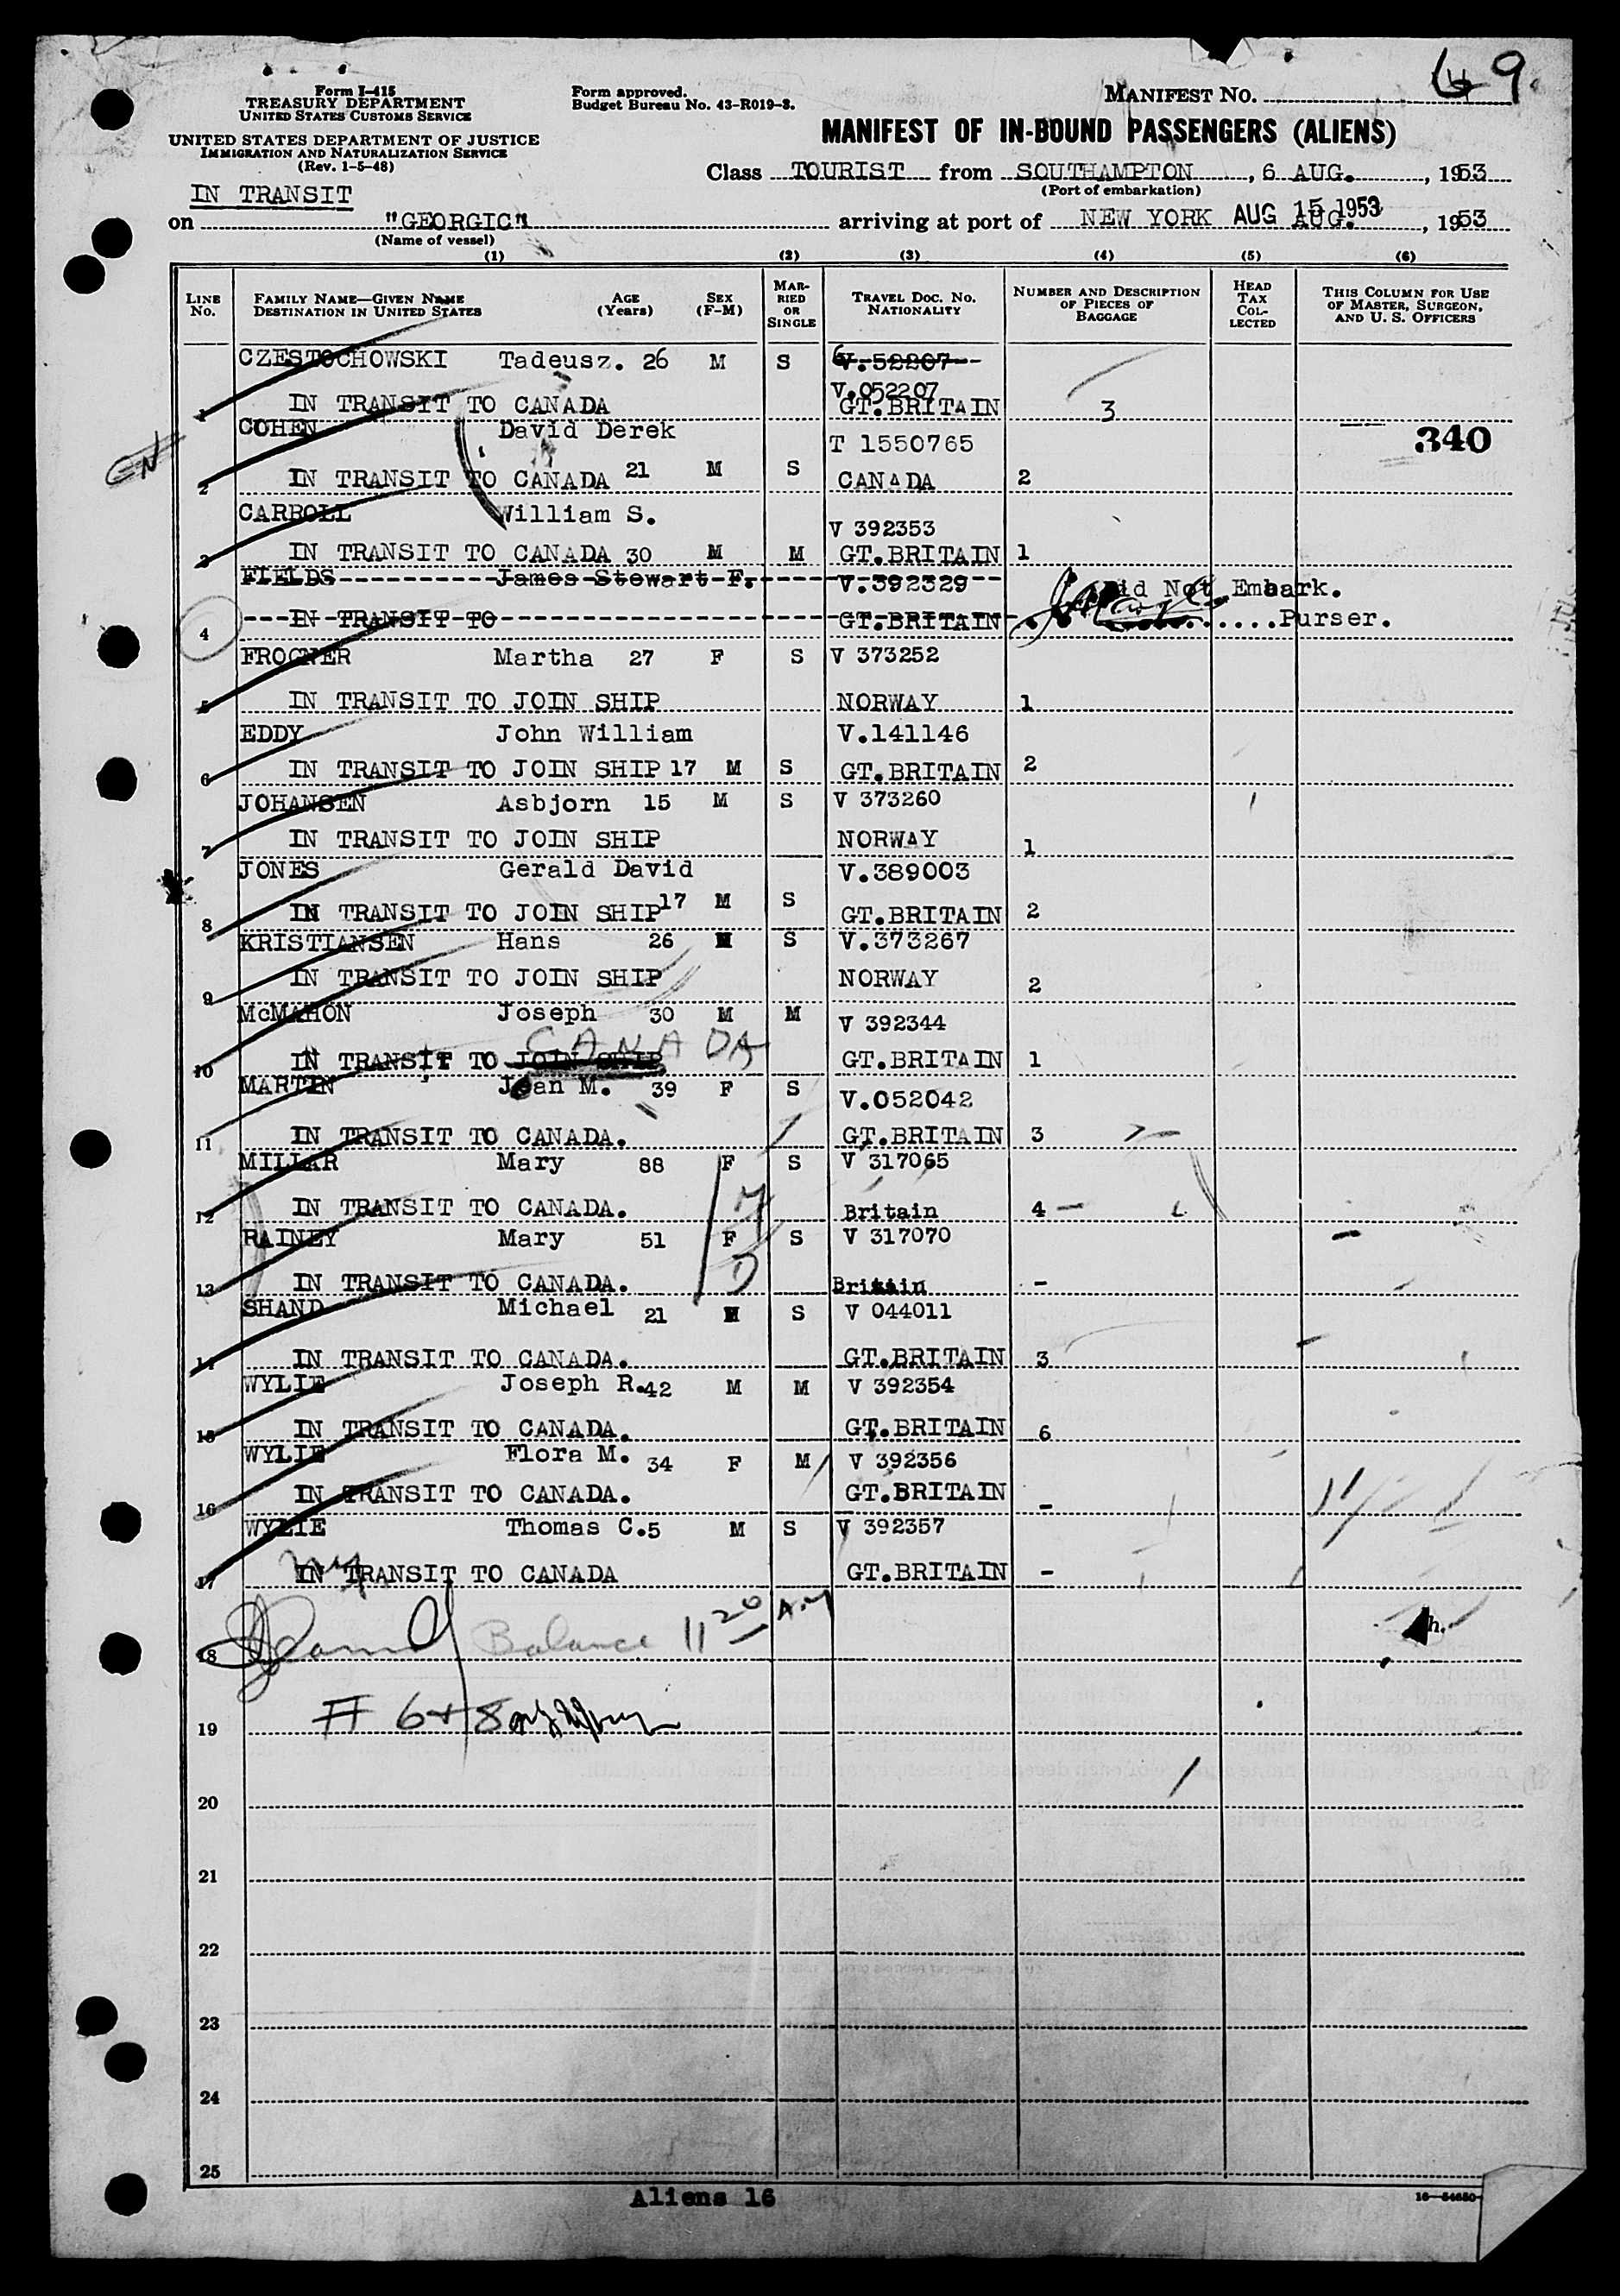 Form I-415
TREASURY DEPARTMENT
UNITED STATES CUSTOMS SERVICE
UNITED STATES DEPARTMENT OF JUSTICE
IMMIGRATION AND NATURALIZATION SERVICE
(Rev. 1-5-48)
Form approved.
Budget Bureau No. 43-R019-3.
MANIFEST NO. 9
MANIFEST OF IN-BOUND PASSENGERS (ALIENS)
Class TOURIST from SOUTHAMPTON, 6 AUG., 1953
(Port of embarkation)
IN TRANSIT
on "GEORGIC" arriving at port of NEW YORK AUG 15 1953 AUG., 1953
(Name of vessel)
(1) (2) (3) (4) (5) (6)
LINE NO. FAMILY NAME—GIVEN NAME DESTINATION IN UNITED STATES AGE (Years) SEX (F-M) MARRIED OR SINGLE TRAVEL DOC. NO. NATIONALITY NUMBER AND DESCRIPTION OF PIECES OF BAGGAGE HEAD TAX COLLECTED THIS COLUMN FOR USE OF MASTER, SURGEON, AND U. S. OFFICERS
CZESTOCHOWSKI Tadeusz. 26 M S V.52207
V.052207
1 IN TRANSIT TO CANADA GT.BRITAIN 3
COHEN David Derek T 1550765 340
2 IN TRANSIT TO CANADA 21 M S CANADA 2
CARROLL William S. V 392353
3 IN TRANSIT TO CANADA 30 M M GT.BRITAIN 1
FIELDS James Stewart F. V.392329 Did Not Embark.
4 IN TRANSIT TO GT.BRITAIN Purser.
FROGNER Martha 27 F S V 373252
5 IN TRANSIT TO JOIN SHIP NORWAY 1
EDDY John William V.141146
6 IN TRANSIT TO JOIN SHIP 17 M S GT.BRITAIN 2
JOHANSEN Asbjorn 15 M S V 373260
7 IN TRANSIT TO JOIN SHIP NORWAY 1
JONES Gerald David V.389003
8 IN TRANSIT TO JOIN SHIP 17 M S GT.BRITAIN 2
KRISTIANSEN Hans 26 M S V.373267
9 IN TRANSIT TO JOIN SHIP NORWAY 2
McMAHON Joseph 30 M M V 392344
10 IN TRANSIT TO JOIN SHIP CANADA GT.BRITAIN 1
MARTIN Jean M. 39 F S V.052042
11 IN TRANSIT TO CANADA. GT.BRITAIN 3
MILLAR Mary 88 F S V 317065
12 IN TRANSIT TO CANADA. Britain 4 -
RAINEY Mary 51 F S V 317070
13 IN TRANSIT TO CANADA. Britain -
SHAND Michael 21 M S V 044011
14 IN TRANSIT TO CANADA. GT.BRITAIN 3
WYLIE Joseph R. 42 M M V 392354
15 IN TRANSIT TO CANADA. GT.BRITAIN 6
WYLIE Flora M. 34 F M V 392356
16 IN TRANSIT TO CANADA. GT.BRITAIN -
WYLIE Thomas C. 5 M S V 392357
17 IN TRANSIT TO CANADA GT.BRITAIN -
18 Balance 11 20 A.M
19 # 6 + 8
20
21
22
23
24
25
Aliens 16